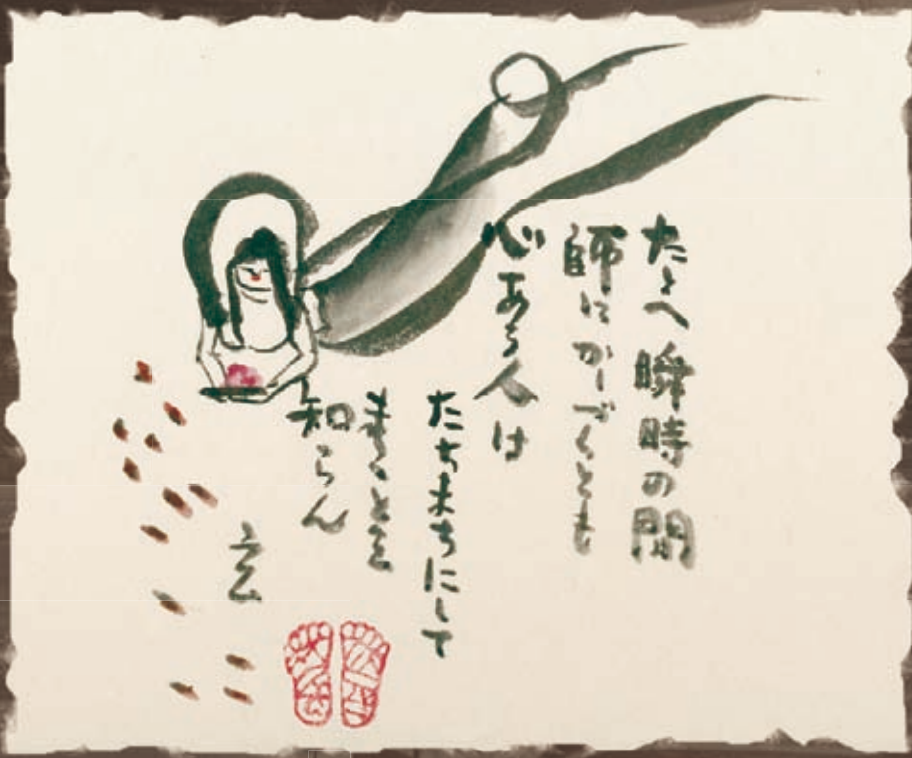 たとへ瞬時の間
師にかしづくとも
心ある人は
たちまちにして
まことを
知らん
玄